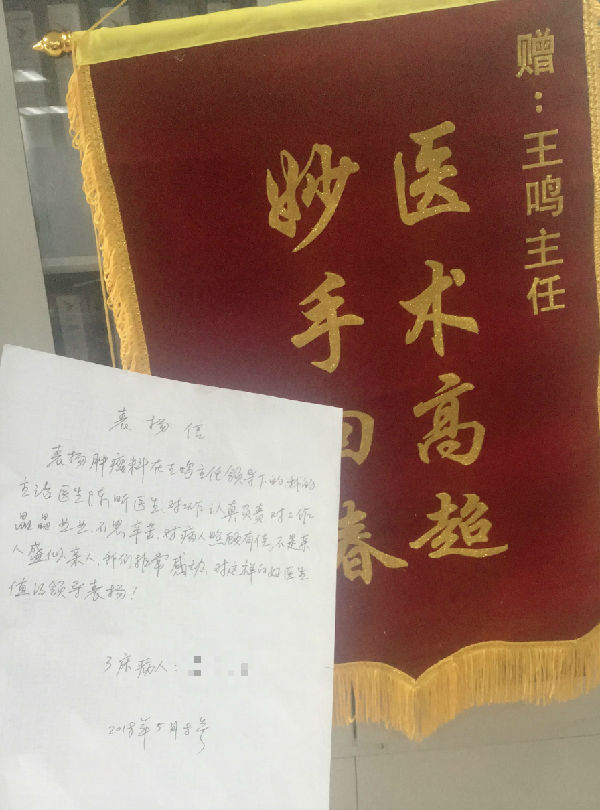 赠:王鸣主任
医术高超
妙手回春
表扬信
表扬肿瘤科在王鸣主任领导下的科的
主治医生陈昕医生,对工作认真负责对工作
兢兢业业,不思辛苦,对病人照顾有佳,不是亲
人盛似亲人,我们非常感动,对这样的好医生
值得领导表扬!
3床病人:
2018年5月